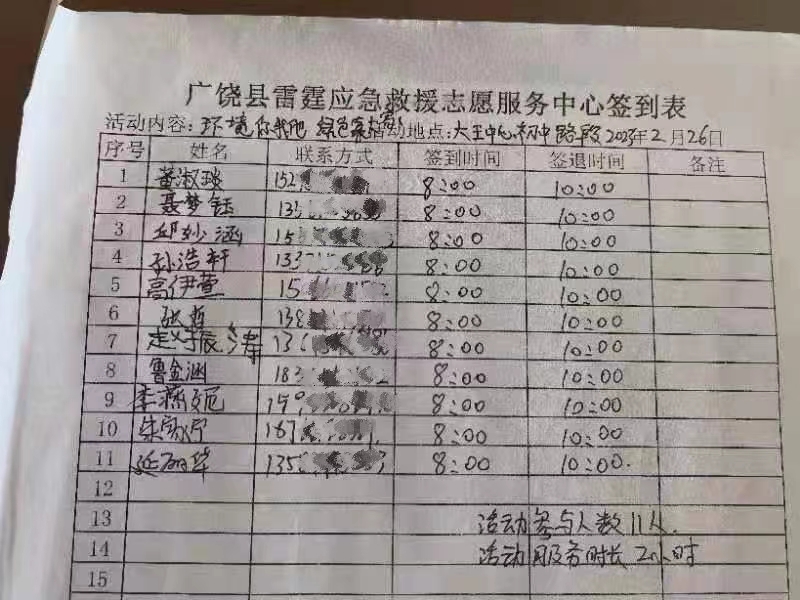 广饶县雷霆应急救援志愿服务中心签到表
活动内容：环境你我他 绿色家 活动地点：大王中心初中路段 2023年2月26日
序号 姓名 联系方式 签到时间 签退时间 备注
1 董淑琰 152 8:00 10:00
2 聂梦钰 135 8:00 10:00
3 邱妙涵 15 8:00 10:00
4 孙浩轩 133 8:00 10:00
5 高伊萱 15 8:00 10:00
6 张哲 138 8:00 10:00
7 振涛 136 8:00 10:00
8 鲁金涵 183 8:00 10:00
9 李燕妮 8:00 10:00
10 187 8:00 10:00
11 延丽华 135 8:00 10:00.
12
13 活动参与人数11人.
14 活动服务时长 2小时
15